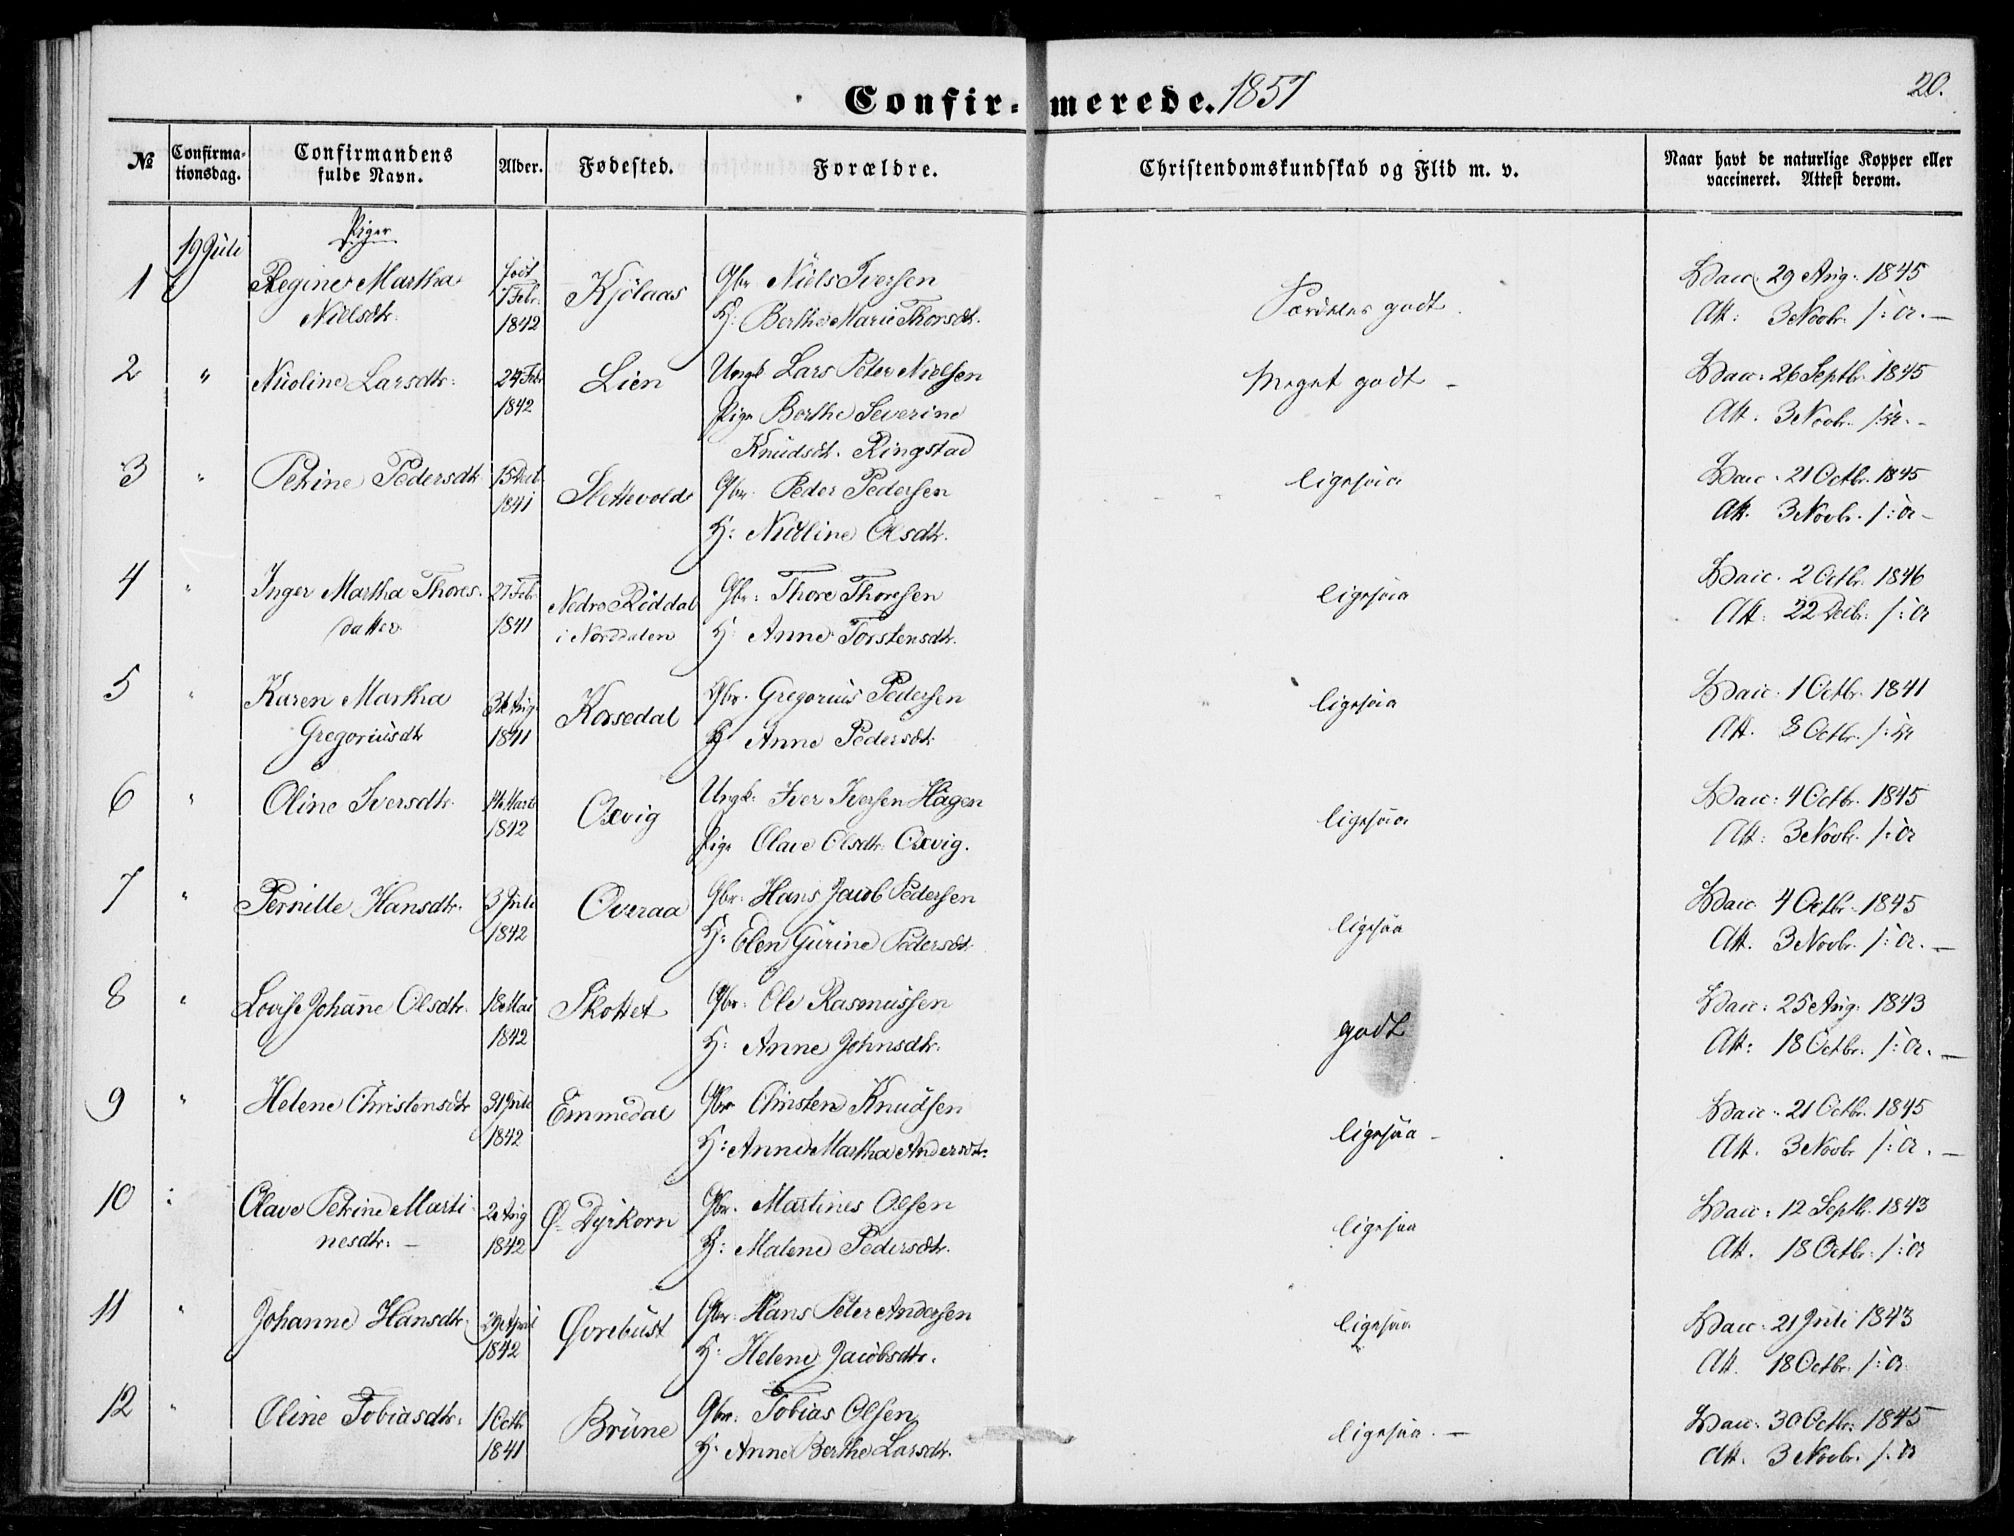 Confir-merede. 1857
20.
№ Confirma-tionsdag. Confirmandens fulde Navn. Alder. Fødested. Forældre. Christendomskundskab og Flid m. v. Naar havt de naturlige Kopper eller vaccineret. Attest derom.
Piger
1 19 Juli Regine Martha Nielsdtr. født 7 Febr. 1842 Kjölaas Gbr. Niels Iversen
H: Berthe Marie Thorsdt. Særdeles godt. Vacc. 29 Aug. 1845
Att: 3 Novbr. s: A. —
2 " Nicoline Larsdtr. 24 Febr 1842 Lien Ungk Lars Peter Nielsen
Pige Berthe Severine
Knudsdt. Ringstad Meget godt - Vacc. 26 Septbr. 1845
Att. 3 Novbr. s: A. -
3 " Petrine Pedersdtr 15 Decb. 1841 Slettevold Gbr. Peder Pedersen
H: Nicoline Olsdtr. ligesaa Vacc. 21 Octbr. 1845
Att. 3 Novbr. s: A -
4 " Inger Martha Thores-datter 27 Febr 1841 Nedre Röddal i Norddalen Gbr: Thore Thoresen
H: Anne Torstensdtr. ligesaa Vacc. 2 Octbr. 1846
Att: 22 Decbr. s: A
5 " Karen Martha Gregoriusdtr 31 Aug. 1841 Korsedal Gbr. Gregorius Pedersen
H Anne Pedersdtr. ligesaa Vacc. 1 Octbr. 1841
Att. 8 Octbr. s: A
6 " Oline Iversdtr. 14 Marts 1842 Oxvig Ungk: Iver Iversen Hagen
Pige Olave Olsdtr. Oxvig. ligesaa Vacc: 4 Octbr. 1845
Att: 3 Novbr. s: A
7 " Pernille Hansdtr. 3 Juli 1842 Overaa Gbr. Hans Jacob Pedersen
H: Elen Gurine Pedersdt. ligesaa Vacc. 4 Octbr. 1845
Att. 3 Novbr. s: A. —
8 " Lovise Johanne Olsdtr. 18 Mai 1842 Skottet Gbr: Ole Rasmussen
H: Anne Johnsdtr. godt Vacc: 25 Aug. 1843
Att: 18 Octbr. s: A. —
9 " Helene Christensdtr 31 Juli 1842 Emmedal Gbr Christen Knudsen
H: Anne Martha Andersdtr: ligesaa - Vacc. 21 Octbr. 1845
Att. 3 Novbr s: A. —
10 " Olave Petrine Marti-nesdtr: — 2 Aug 1842 Ø. Dyrkorn Gbr. Martines Olsen
H: Malene Pedersdtr. ligesaa Vacc: 12 Septbr. 1843
Att. 18 Octbr. s: A
11 " Johanne Hansdtr. 29 April 1842 Øvrebust Gbr: Hans Peter Andersen
H: Helene Jacobsdtr. ligesaa Vacc. 21 Juli 1843
Att. 18 Octbr. s: A
12 " Oline Tobiasdtr. 1 Octbr 1841 Brune Gbr: Tobias Olsen
H: Anne Berthe Larsdtr. ligesaa. — Vacc: 30 Octbr: 1845
Att. 3 Novbr. s: A